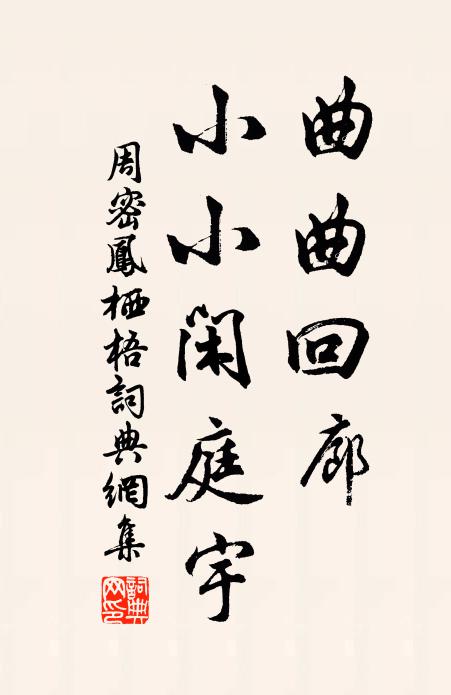 曲曲回廊
小小闲庭宇
周密鳳栖梧詞典網集
詞典
网印